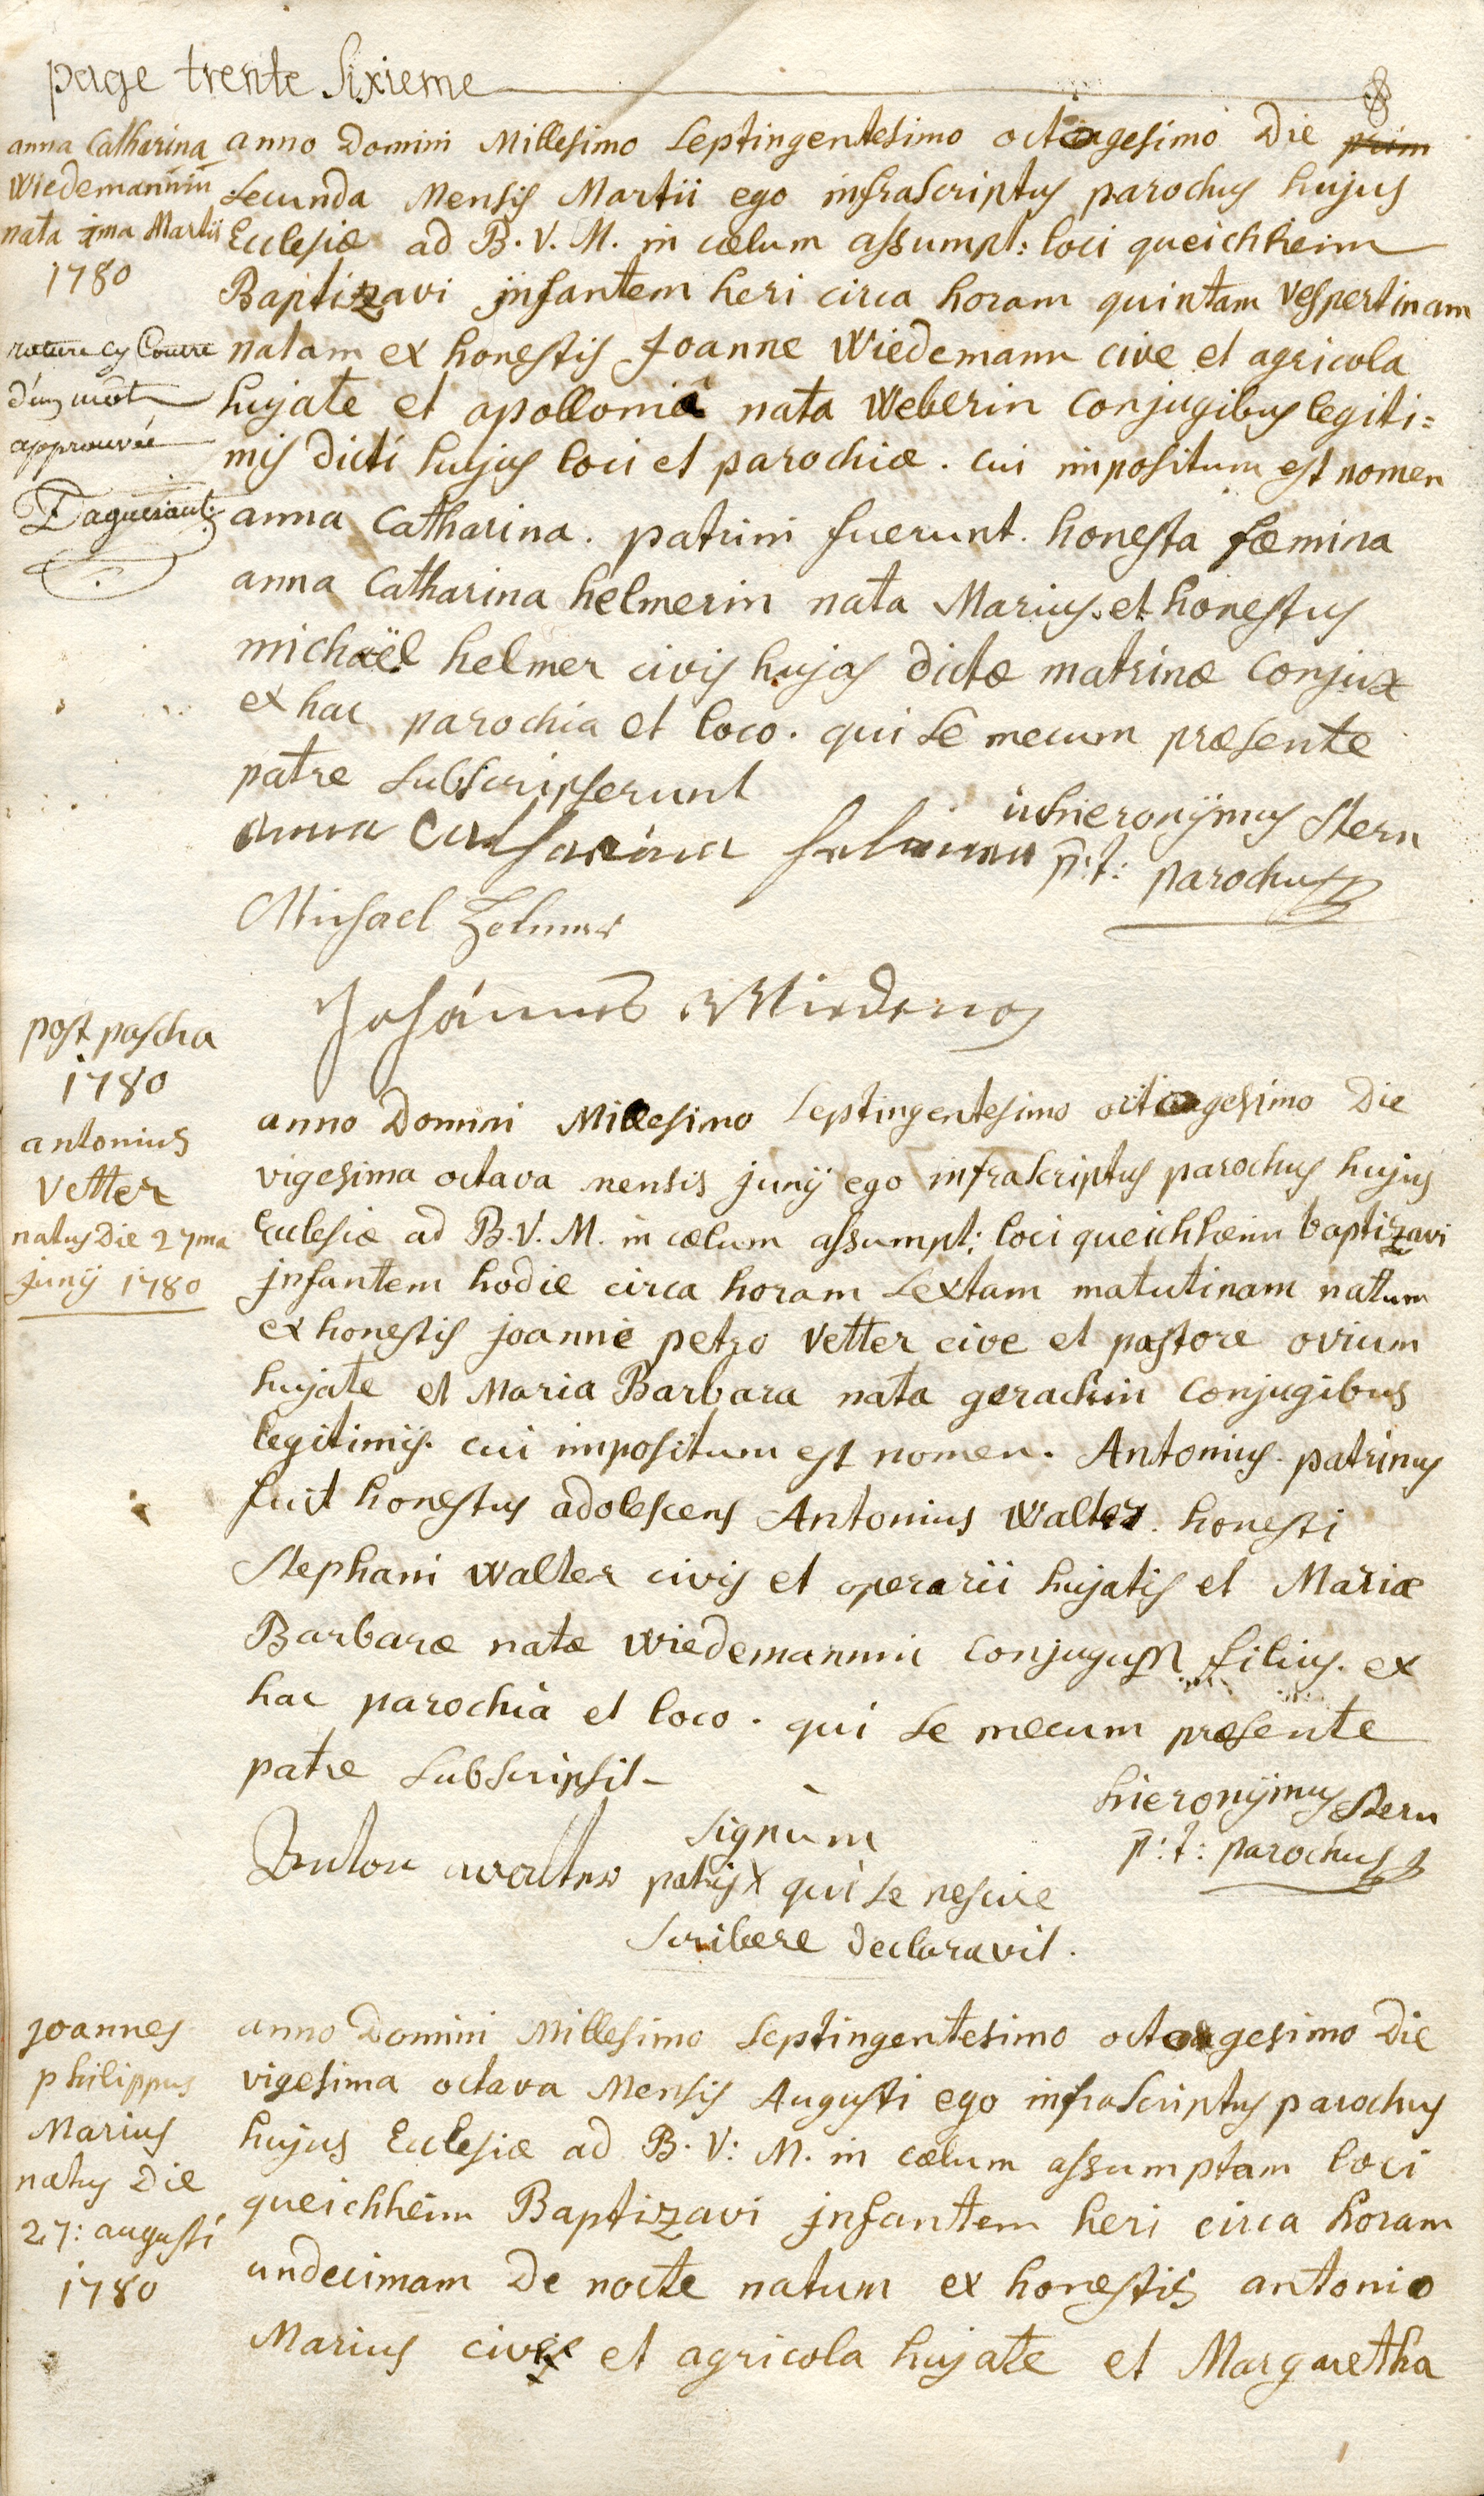 page trente Sixieme
anna Catharina
Wiedemannin
nata 1ma Martii
1780
rature cy Contre
d'un mot
approuvée
Daguriaut
anno Domini Millesimo Septingentesimo octogesimo Die prim
secunda Mensis Martii ego infrascriptus parochus hujus
Ecclesiæ ad B. V. M. in cœlum assumpt: loci queichheim
Baptizavi jnfantem heri circa horam quintam vespertinam
natam ex honestis Joanne Wiedemann cive et agricola
hujate et apolloniâ nata Weberin conjugibus legiti=
mis dicti hujus loci et parochiæ. cui impositum est nomen
anna Catharina. patrini fuerunt. honesta fœmina
anna Catharina helmerin nata Marius. et honestus
michaël helmer civis hujas dictæ matrinæ conjux
ex hac parochia et loco. qui se mecum præsente
patre subscripserunt
anna Catharina
hieronÿmus Stern
p: t: parochus
Michael Helmer
Johannes
post pascha
1780
antonius
Vetter
natus Die 27ma
junÿ 1780
anno Domini Millesimo Septingentesimo octogesimo Die
vigesima octava mensis junÿ ego infrascriptus parochus hujus
Ecclesiæ ad B. V. M. in cœlum assumpt: loci queichheim baptizavi
jnfantem hodie circa horam sextam matutinam natum
ex honestis joanne petro Vetter cive et pastore ovium
hujate et Maria Barbara nata gerachin conjugibus
legitimis. cui impositum est nomen. Antonius. patrinus
fuit honestus adolescens Antonius Walter. honesti
Stephani Walter civis et operarii hujatis et Mariæ
Barbaræ natæ Wiedemannin conjugum filius. ex
hac parochia et loco. qui se mecum præsente
patre subscripsit
hieronÿmus Stern
p: t: parochus
Anton walter
signum
patris X qui se nescire
scribere declaravit.
joannes
philippus
Marius
natus Die
27: augusti
1780
anno Domini Millesimo Septingentesimo octogesimo Die
vigesima octava Mensis Augusti ego infrascriptus parochus
hujus Ecclesiæ ad B. V: M. in cœlum assumptam loci
queichheim Baptizavi jnfantem heri circa horam
undecimam De nocte natum ex honestis antonio
Marius cive et agricola hujate et Margaretha